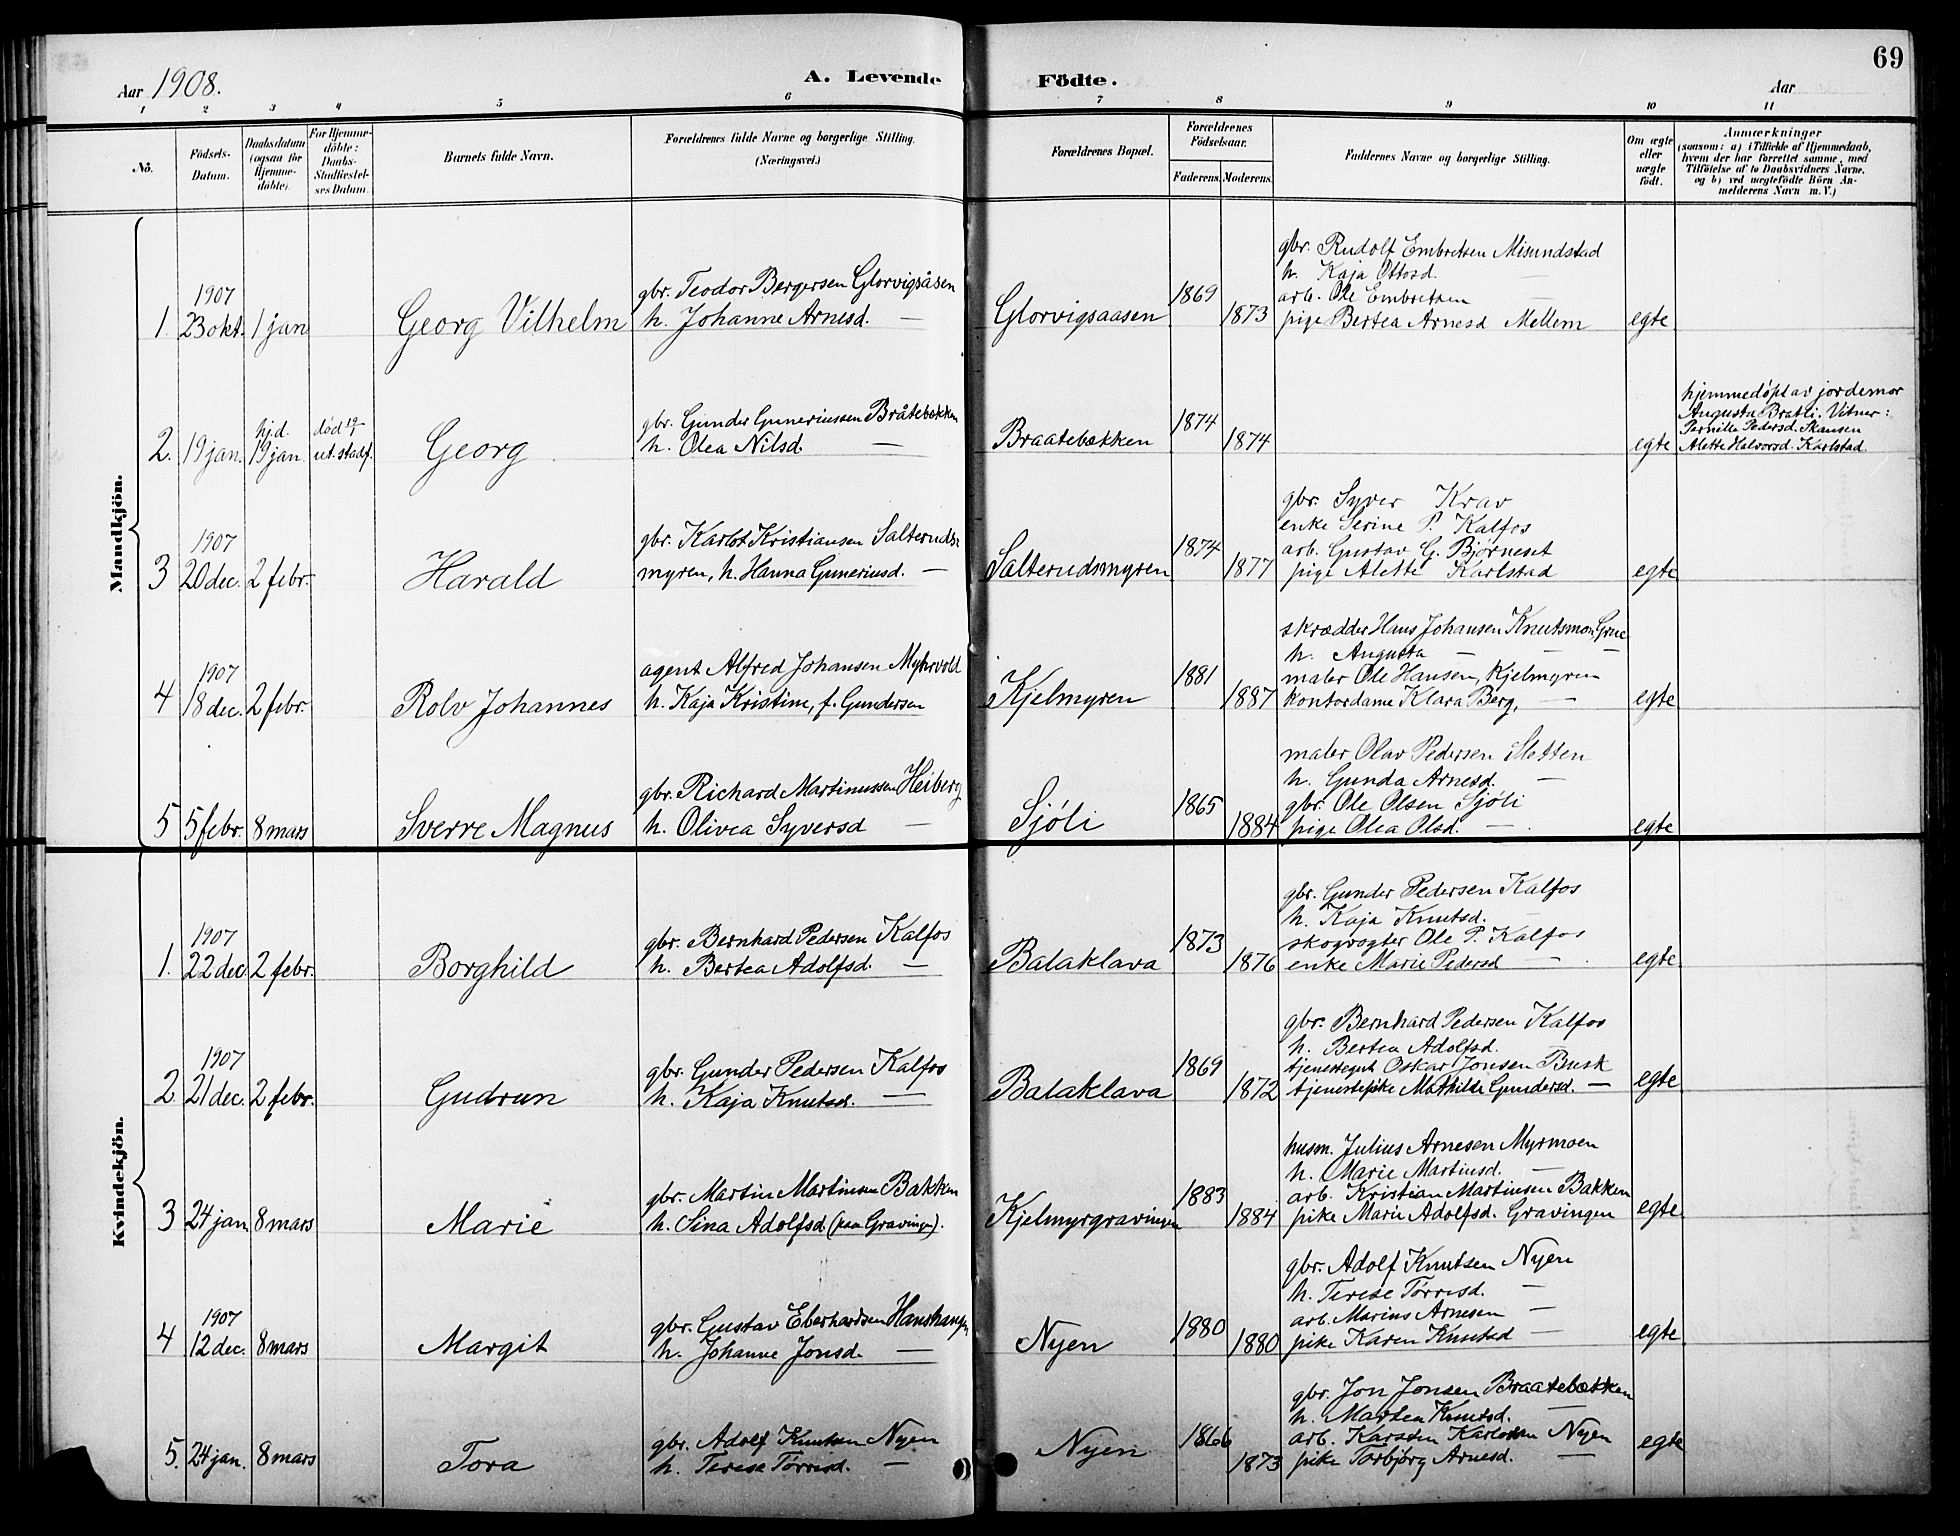 Aar 1908.
A. Levende Fødte.
Aar
69
1 2 3 4 5 6 7 8 9 10 11
No.
Fødsels-Datum.
Daabsdatum (ogsaa for Hjemme-døbte).
For Hjemme-døbte: Daabs-Stadfæstel-ses Datum.
Barnets fulde Navn.
Forældrenes fulde Navne og borgerlige Stilling.
(Næringsvei.)
Forældrenes Bopæl.
Forældrenes Fødselsaar.
Faderens. Moderens.
Faddernes Navne og borgerlige Stilling.
Om ægte eller uægte født.
Anmærkninger
(saasom: a) i Tilfælde af Hjemmedaab,
hvem der har forrettet samme, med
Tilføielse af to Daabsvidners Navne,
og b) ved uægtefødte Børn An-
melderens Navn m. V.)
Mandkjön.
1. 1907 23 okt. 1 jan
Georg Vilhelm
gbr. Teodor Bergersen Glorvigsåsen
h. Johanne Arnesd. —
Glorvigsaasen
1869
1873
gbr. Rudolf Embretsen Misundstad
h. Kaja Ottosd. —
arb. Ole Embretsen —
pige Bertea Arnesd Mellem
egte
2. 19 jan. hjd. 19 jan. død 19/1 ut. stadf.
Georg
gbr. Gunder Guneriussen Bråtebækken
h. Olea Nilsd. —
Braatebækken
1874
1874
egte
hjemmedøpt av jordemor
Augusta Bratli. Vitner:
Pernille Pedersd. Skansen
Alette Halvorsd. Karlstad.
3 1907 20 dec. 2 febr.
Harald
gbr. Karlot Kristiansen Salteruds-
myren, h. Hanna Guneriusd. —
Salterudsmyren
1874
1877
gbr. Syver Krav
enke Serine P. Kalfos
arb. Gustav G. Bjørneset
pige Alette Karlstad
egte
4 1907 18 dec. 2 febr.
Rolv Johannes
agent Alfred Johansen Myhrvold
h. Kaja Kristine, f. Gundersen
Kjelmyren
1881
1887
skrædder Hans Johansen Knutsmon, Grue
h. Augusta — — —
maler Ole Hansen, Kjelmyren
kontordame Klara Berg, —
egte
5 5 febr. 8 mars
Sverre Magnus
gbr. Richard Martinussen Heiberg
h. Olivea Syversd —
Sjøli
1865
1884
maler Olav Pedersen Sletten
h. Gunda Arnesd. —
gbr. Ole Olsen Sjøli
pige Olea Olsd. —
egte
Kvindekjön.
1. 1907 22 dec 2 febr.
Borghild
gbr. Bernhard Pedersen Kalfos
h. Bertea Adolfsd. —
Balaklava
1873
1876
gbr. Gunder Pedersen Kalfos
h. Kaja Knutsd. —
skogvogter Ole P. Kalfos
enke Marie Pedersd —
egte
2. 1907 21 dec. 2 febr.
Gudrun
gbr. Gunder Pedersen Kalfos
h. Kaja Knutsd. —
Balaklava
1869
1872
gbr. Bernhard Pedersen Kalfos
h. Bertea Adolfsd. —
tjenestegut Oskar Jonsen Busk
tjenestepike Mathilde Gundersd. —
egte
3 24 jan. 8 mars
Marie
gbr. Martin Martinsen Bakken
h. Sina Adolfsd (paa Gravingen).
Kjelmyrgravingen
1883
1884
husm. Julius Arnesen Myrmoen
h. Marie Martinsd. —
arb. Kristian Martinsen Bakken
pike Marie Adolfsd. Gravingen
egte
4 1907 12 dec. 8 mars
Margit
gbr. Gustav Eberhardsen Hanshaugen
h. Johanne Jonsd. —
Nyen
1880
1880
gbr. Adolf Knutsen Nyen
h. Terese Tørresd. —
arb. Marius Arnesen —
pike Karen Knutsd —
egte
5. 24 jan. 8 mars
Tora
gbr. Adolf Knutsen Nyen
h. Terese Tørresd. —
Nyen
1866
1873
gbr. Jon Jonsen Braatebækken
h. Martea Knutsd. —
arb. Karsten Karlsen Nyen
pike Torbjørg Arnesd. —
egte